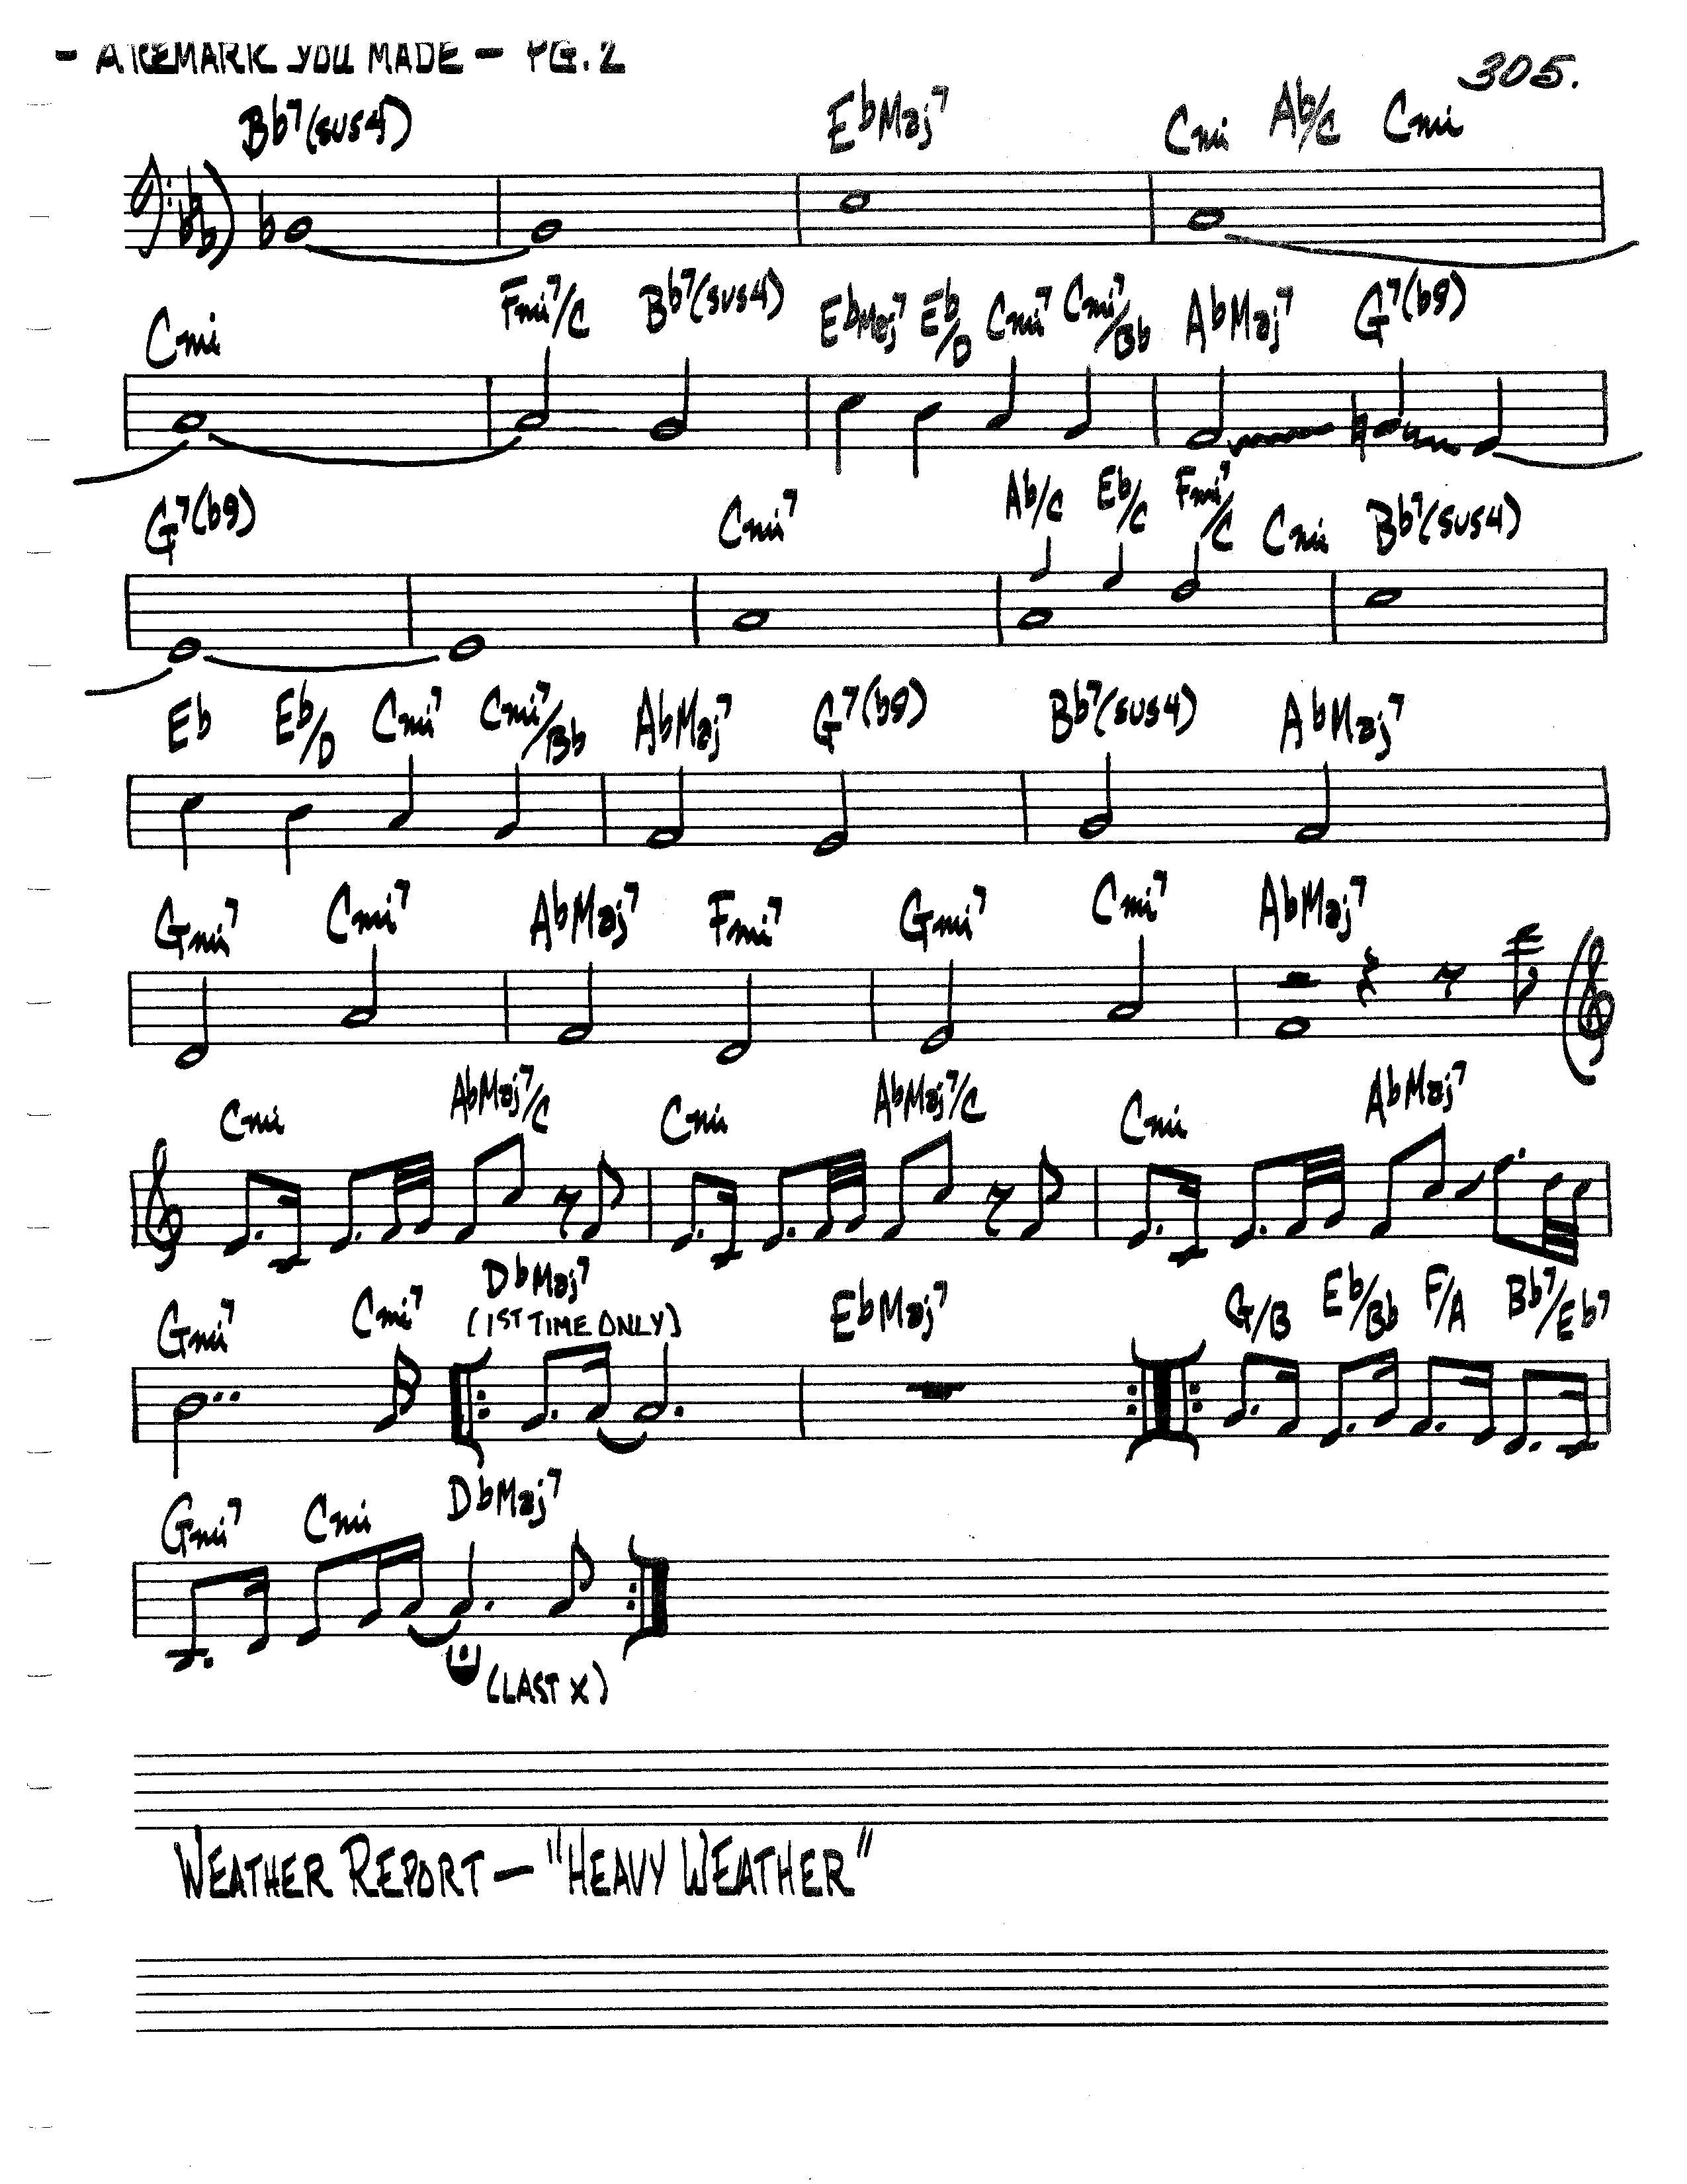 - A REMARK YOU MADE - PG. 2
305.
Bb7(sus4) EbMaj7 Cmi Ab/C Cmi
Cmi Fmi7/C Bb7(sus4) EbMaj7 Eb/D Cmi7 Cmi7/Bb AbMaj7 G7(b9)
G7(b9) Cmi7 Ab/C Eb/C Fmi7/C Cmi Bb7(sus4)
Eb Eb/D Cmi7 Cmi7/Bb AbMaj7 G7(b9) Bb7(sus4) AbMaj7
Gmi7 Cmi7 AbMaj7 Fmi7 Gmi7 Cmi7 AbMaj7
Cmi AbMaj7/C Cmi AbMaj7/C Cmi AbMaj7
Gmi7 Cmi7 DbMaj7 EbMaj7 G/B Eb/Bb F/A Bb7/Eb7
(1ST TIME ONLY)
Gmi7 Cmi DbMaj7
(LAST X)
WEATHER REPORT - "HEAVY WEATHER"